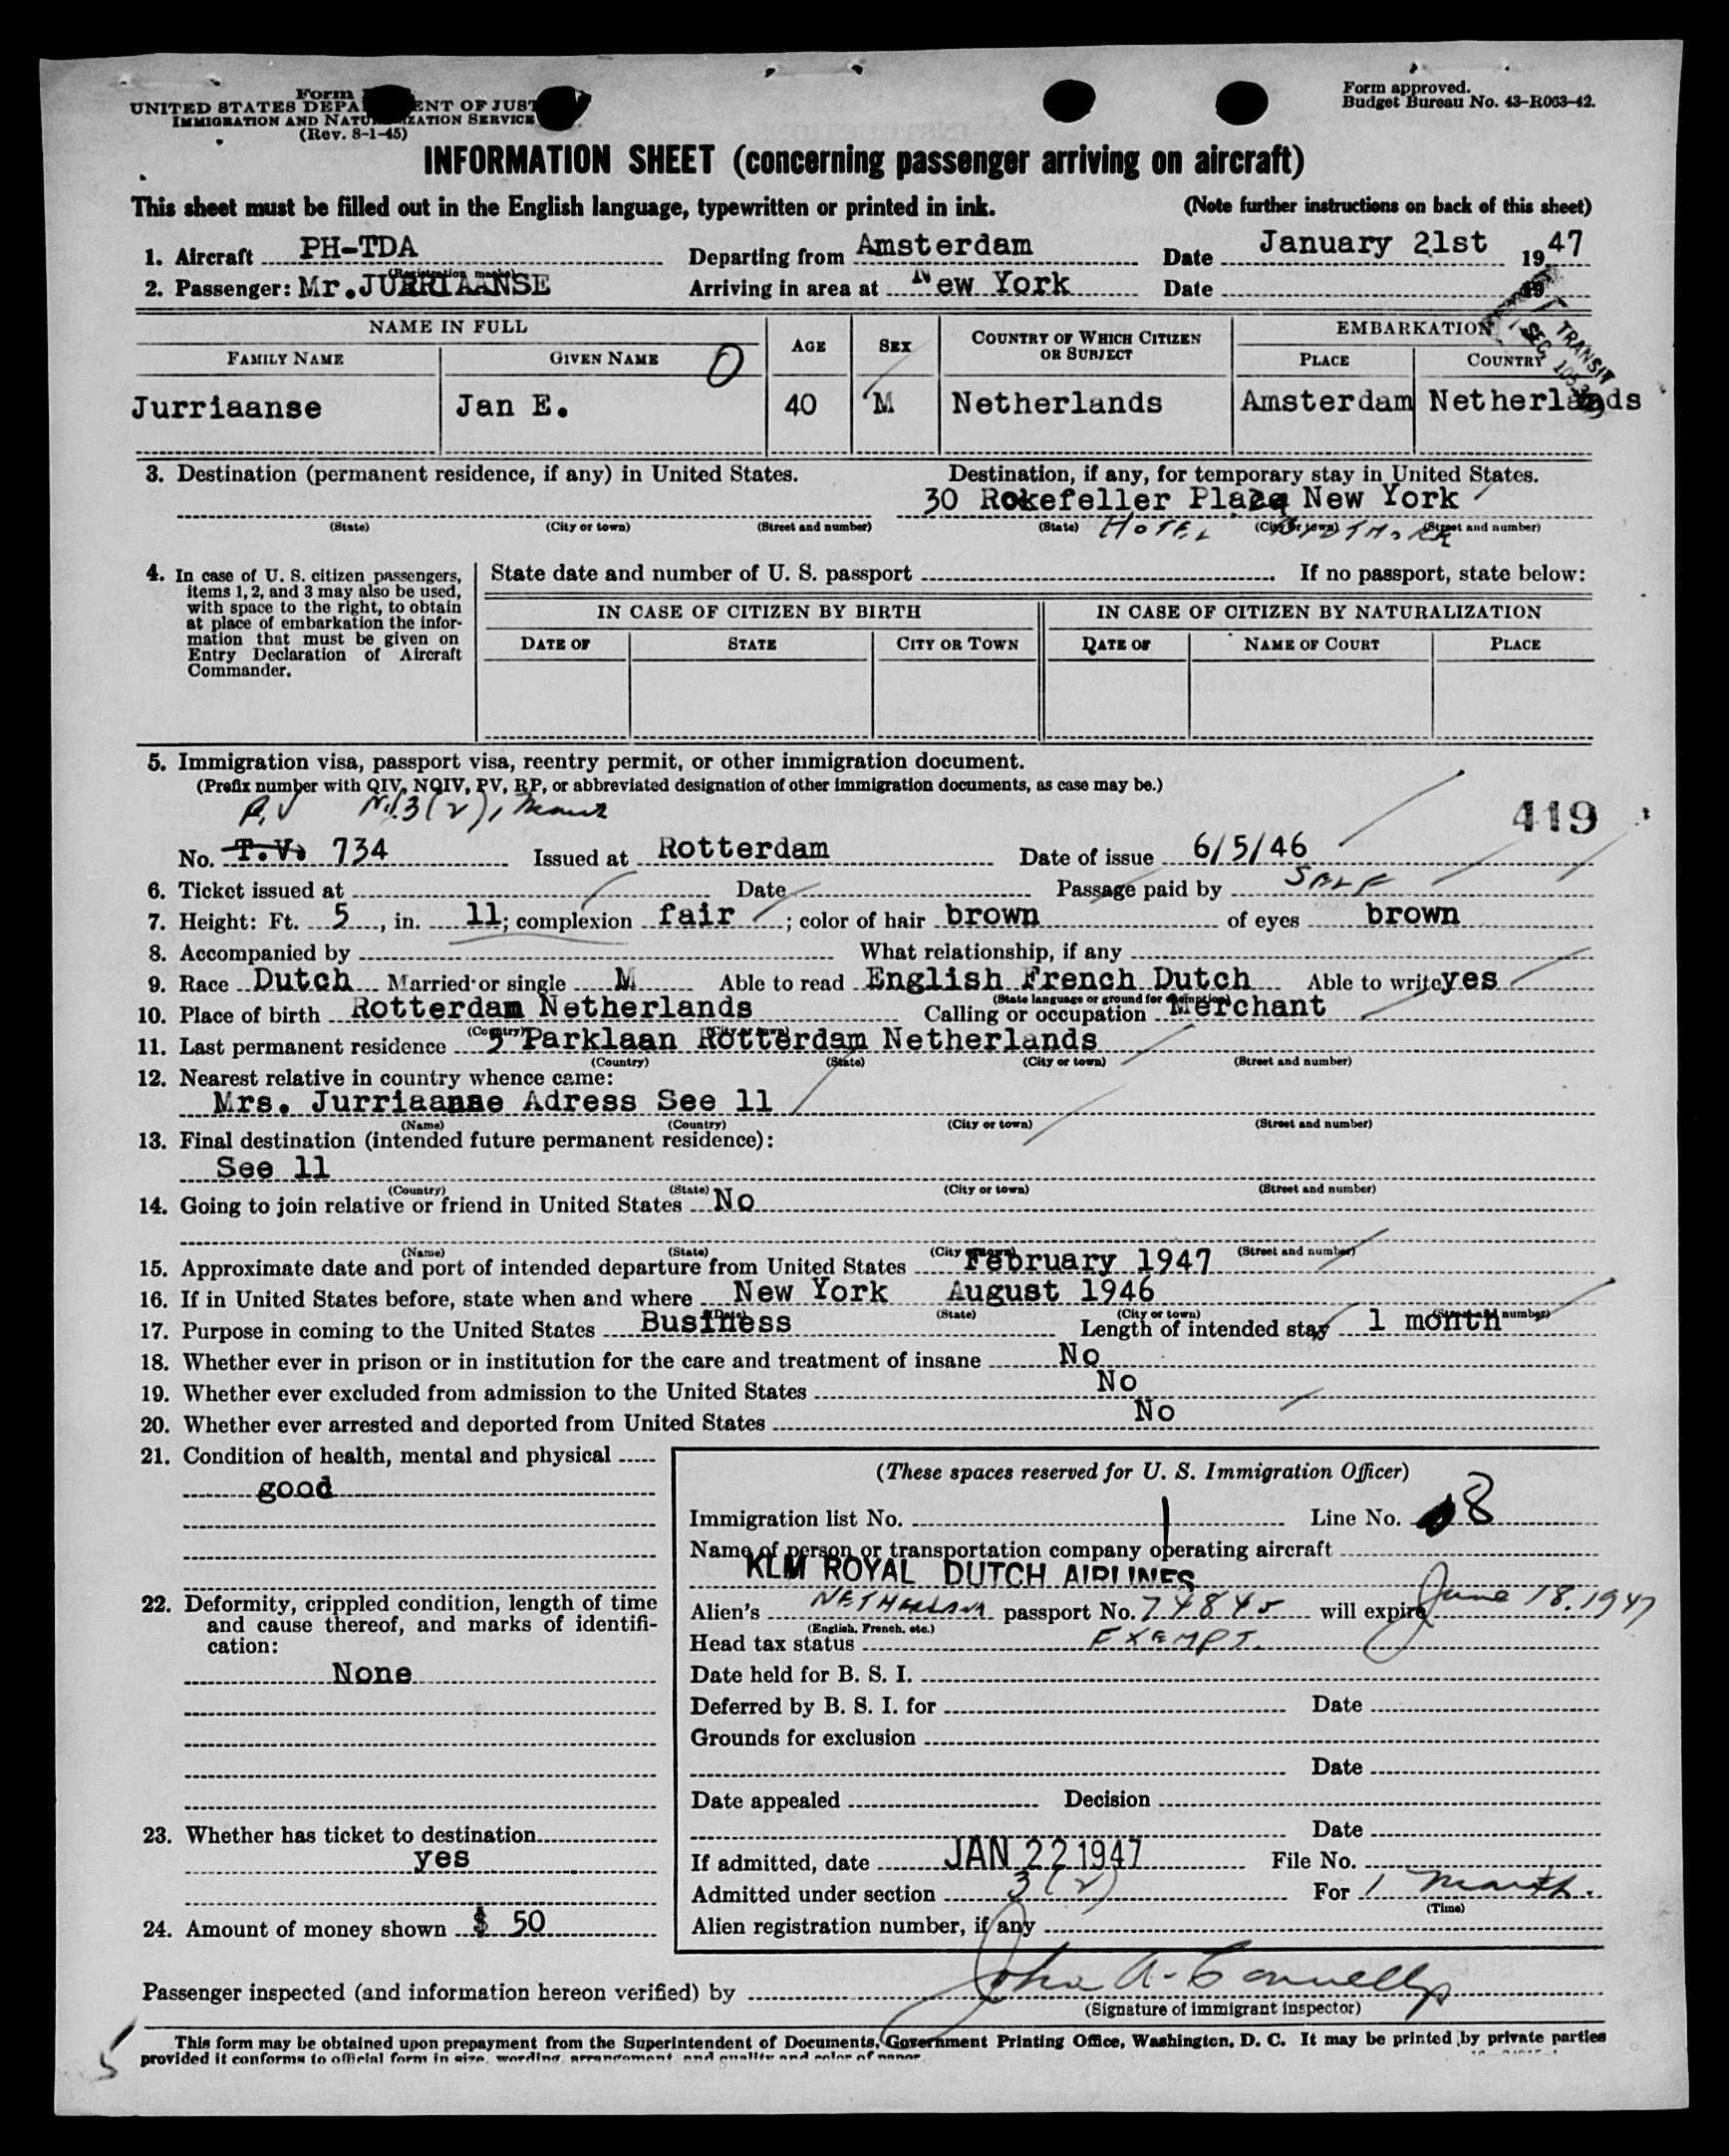 Form
UNITED STATES DEPA ENT OF JUST
IMMIGRATION AND NATU ZATION SERVICE
(Rev. 8-1-45)
Form approved.
Budget Bureau No. 43-R063-42.
INFORMATION SHEET (concerning passenger arriving on aircraft)
This sheet must be filled out in the English language, typewritten or printed in ink. (Note further instructions on back of this sheet)
1. Aircraft PH-TDA Departing from Amsterdam Date January 21st 1947
(Registration marks)
2. Passenger: Mr. JURRIAANSE Arriving in area at New York Date 19
TRANSIT
SEC.
NAME IN FULL AGE SEX COUNTRY OF WHICH CITIZEN OR SUBJECT EMBARKATION
FAMILY NAME GIVEN NAME PLACE COUNTRY
0
Jurriaanse Jan E. 40 M Netherlands Amsterdam Netherlands
3. Destination (permanent residence, if any) in United States. Destination, if any, for temporary stay in United States.
30 Rokefeller Plaza New York
(State) (City or town) (Street and number) (State) (City or town) (Street and number)
HOTEL
4. In case of U. S. citizen passengers, items 1, 2, and 3 may also be used, with space to the right, to obtain at place of embarkation the information that must be given on Entry Declaration of Aircraft Commander.
State date and number of U. S. passport If no passport, state below:
IN CASE OF CITIZEN BY BIRTH IN CASE OF CITIZEN BY NATURALIZATION
DATE OF STATE CITY OR TOWN DATE OF NAME OF COURT PLACE
5. Immigration visa, passport visa, reentry permit, or other immigration document.
(Prefix number with QIV, NQIV, PV, RP, or abbreviated designation of other immigration documents, as case may be.)
P.V 3(2),
419
No. T.V. 734 Issued at Rotterdam Date of issue 6/5/46
6. Ticket issued at Date Passage paid by SELF
7. Height: Ft. 5, in. 11; complexion fair; color of hair brown of eyes brown
8. Accompanied by What relationship, if any
9. Race Dutch Married or single M Able to read English French Dutch Able to write yes
(State language or ground for exemption)
10. Place of birth Rotterdam Netherlands Calling or occupation Merchant
(Country) (City or town)
11. Last permanent residence 5 Parklaan Rotterdam Netherlands
(Country) (State) (City or town) (Street and number)
12. Nearest relative in country whence came:
Mrs. Jurriaanse Adress See 11
(Name) (Country) (City or town) (Street and number)
13. Final destination (intended future permanent residence):
See 11
(Country) (State) (City or town) (Street and number)
14. Going to join relative or friend in United States No
(Name) (State) (City or town) (Street and number)
15. Approximate date and port of intended departure from United States February 1947
16. If in United States before, state when and where New York August 1946
(Date) (State) (City or town) (Street and number)
17. Purpose in coming to the United States Business Length of intended stay 1 month
18. Whether ever in prison or in institution for the care and treatment of insane No
19. Whether ever excluded from admission to the United States No
20. Whether ever arrested and deported from United States No
21. Condition of health, mental and physical
good
22. Deformity, crippled condition, length of time and cause thereof, and marks of identification:
None
23. Whether has ticket to destination
yes
24. Amount of money shown $ 50
(These spaces reserved for U. S. Immigration Officer)
Immigration list No. 1 Line No. 8
Name of person or transportation company operating aircraft
KLM ROYAL DUTCH AIRLINES
Alien's NETHERLAND passport No. 74845 will expire June 18, 1947
(English, French, etc.)
Head tax status EXEMPT.
Date held for B. S. I.
Deferred by B. S. I. for Date
Grounds for exclusion
Date
Date appealed Decision
Date
If admitted, date JAN 22 1947 File No.
Admitted under section 3(2) For 1 month.
(Time)
Alien registration number, if any
Passenger inspected (and information hereon verified) by John A. Connelly
(Signature of immigrant inspector)
This form may be obtained upon prepayment from the Superintendent of Documents, Government Printing Office, Washington, D. C. It may be printed by private parties
provided it conforms to official form in size, wording, arrangement, and quality and color of paper.
5